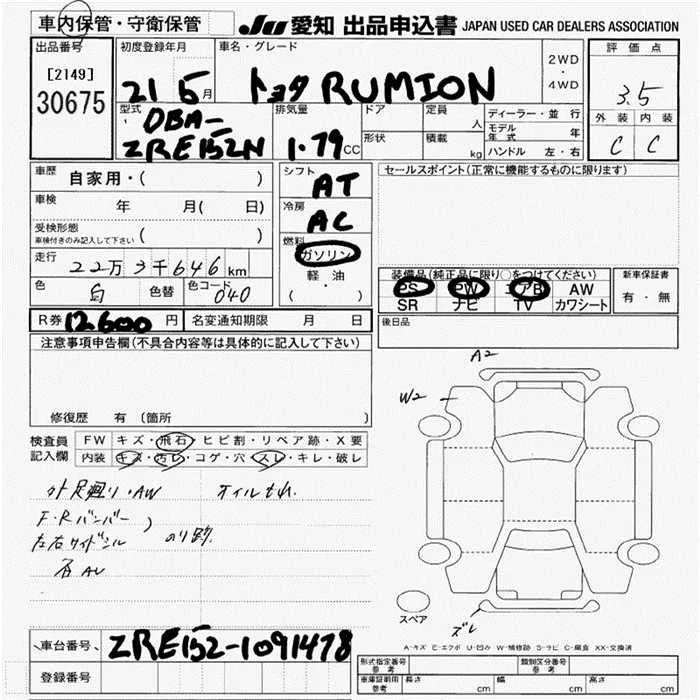 車内保管・守衛保管
JU 愛知 出品申込書 JAPAN USED CAR DEALERS ASSOCIATION
出品番号
[2149]
30675
初度登録年月
21 5月
車名・グレード
トヨタ RUMION
2WD
・
4WD
評価点
3.5
外装 内装
C C
型式
DBA-
ZRE152N
排気量
1.79 CC
ドア
形状
定員
人
積載
kg
ディーラー・並行
モデル年式 年
ハンドル 左・右
車歴 自家用・( )
車検 年 月( 日)
受検形態
車検付きのみ記入して下さい ( )
走行 22万3千646km
色 白 色替 色コード 040
シフト
AT
冷房
AC
燃料
ガソリン
軽・油
( ・ )
セールスポイント(正常に機能するものに限ります)
装備品(純正品に限り○をつけてください)
PS PW エアB AW
SR ナビ TV カワシート
新車保証書
有・無
R券 12,600円 名変通知期限 月 日
後日品
注意事項申告欄(不具合内容等は具体的に記入して下さい)
修復歴 有(箇所 )
検査員
記入欄
FW キズ・飛石・ヒビ割・リペア跡・X要
内装 キズ・汚レ・コゲ・穴・スレ・キレ・破レ
外 足廻り・AW オイルもれ
F・Rバンパー
左右サイドシル
A2
W2
スペア
ズレ
A-キズ E-エクボ U-凹み W-補修跡 S-サビ C-腐食 XX-交換済
車台番号 ZRE152-1091478
登録番号
形式指定番号
参考
類別区分番号
参考
車庫証明用
参考
長さ cm 幅 cm 高さ cm